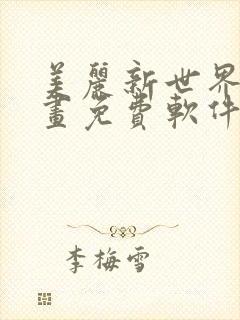 美麗新世界漫
畫免費軟件
李梅雪